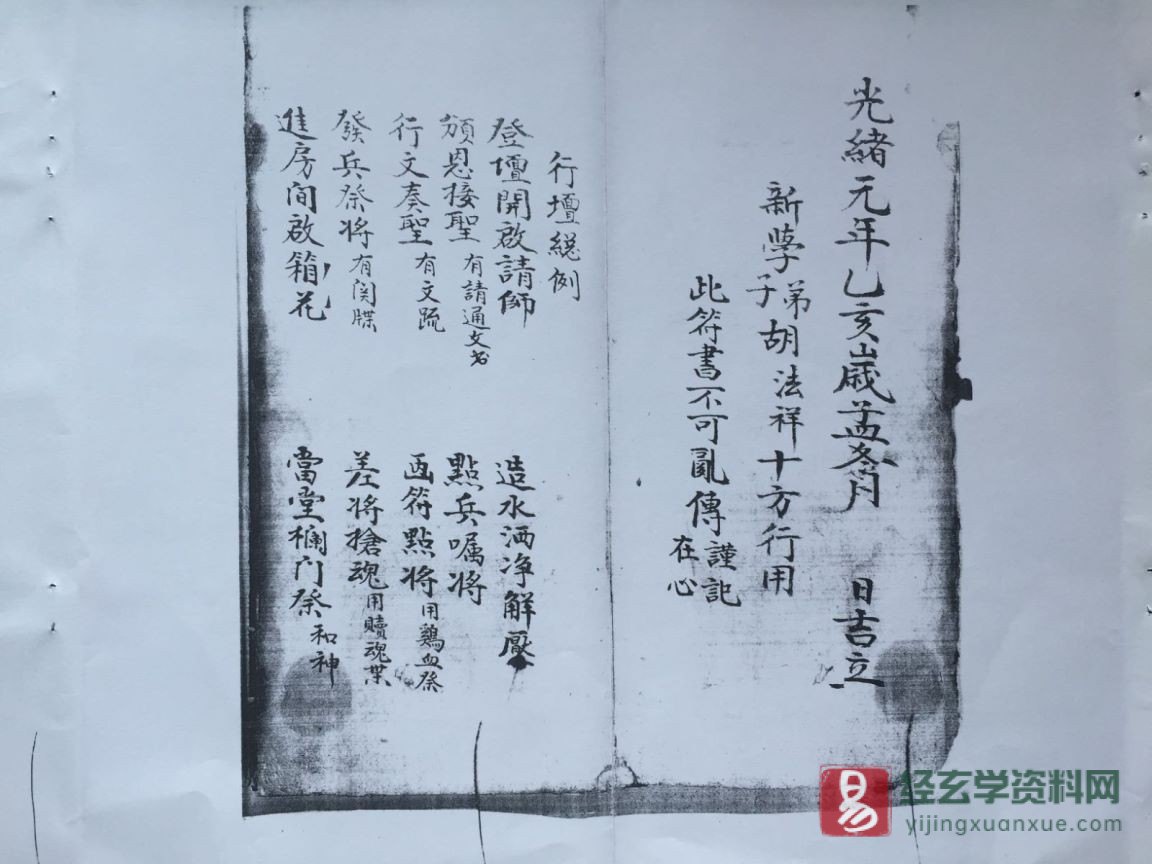 光緒元年乙亥歲孟冬月 日吉立
新學弟子胡法祥十方行用
此符書不可亂傳謹記在心
行壇總例
登壇開啟請師 造水洒净解厭
頒恩接聖有請通文書 點兵嘱将
行文奏聖有文疏 画符點将用鷄血祭
發兵祭将有関牒 差将搶魂用贖魂
進房间啟箱花 當堂欄门祭和神
易
经玄学资料网
yijingxuanxue.com